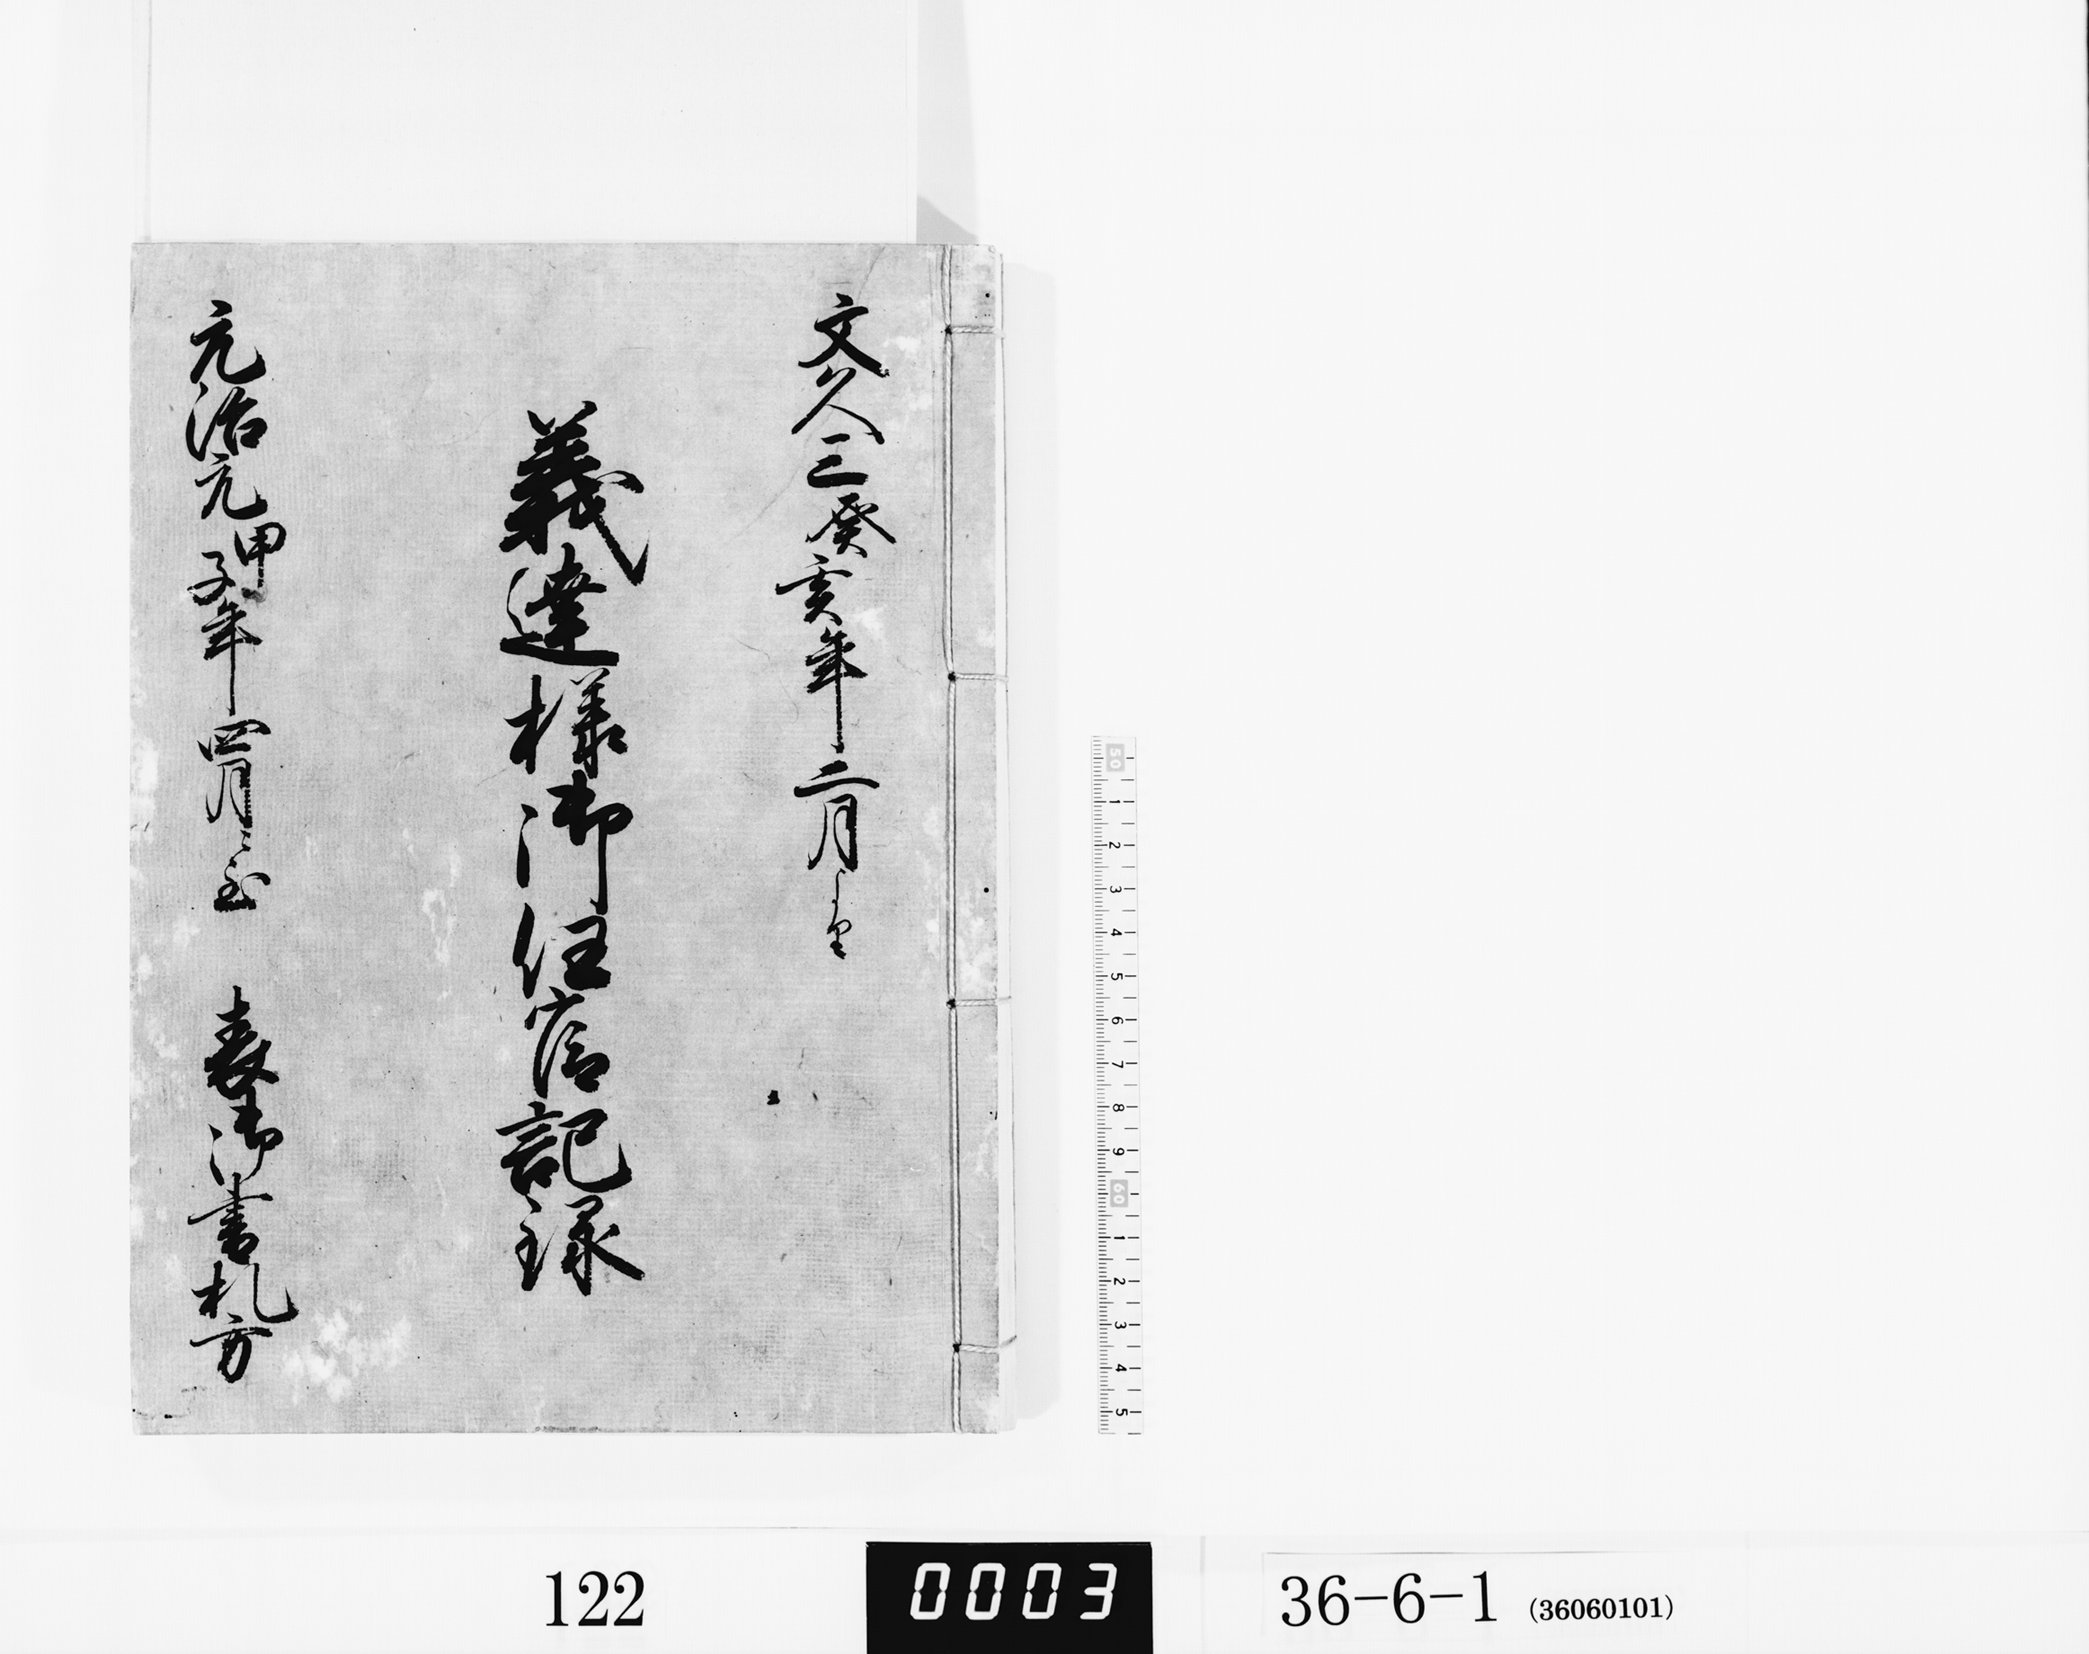 文久三癸亥年二月ゟ
義達様御任官記録
元治元甲子年四月ニ至
表御書札方
50
1
2
3
4
5
6
7
8
9
60
1
2
3
4
5
122
0003
36-6-1 (36060101)